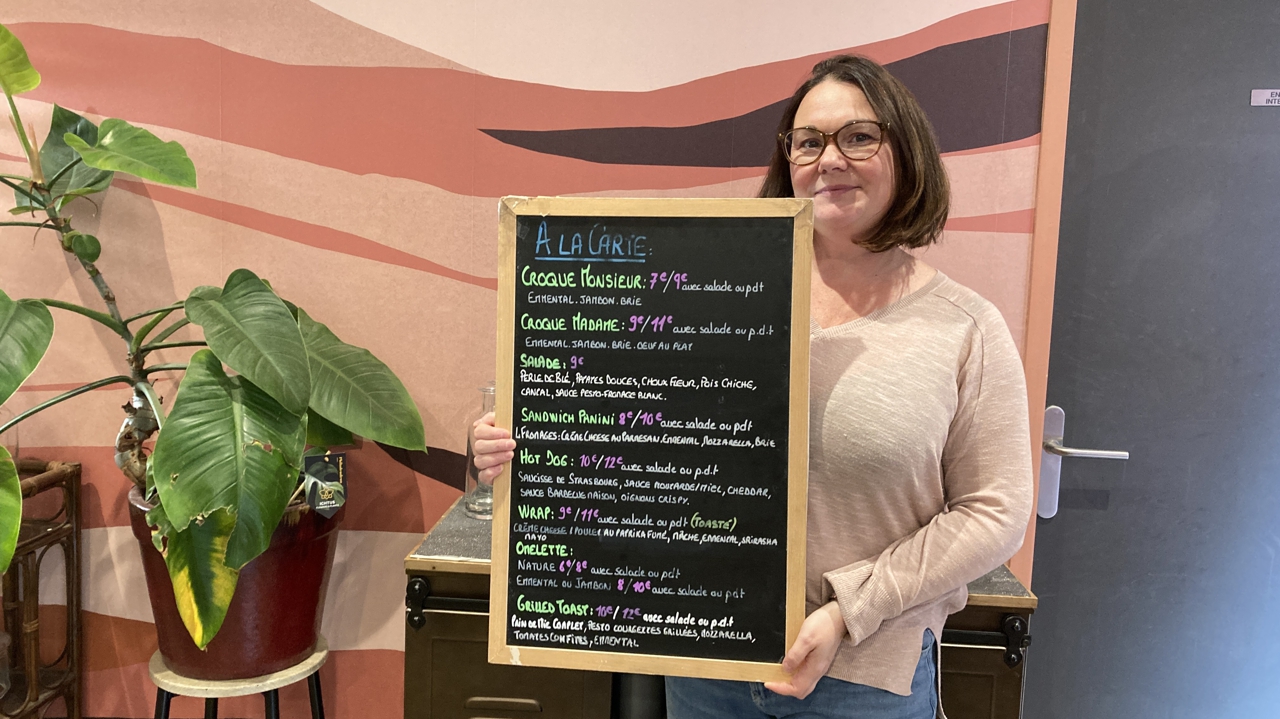 À LA CARTE:
CROQUE MONSIEUR: 7€/9€ avec salade ou pdt
EMMENTAL. JAMBON. BRIE
CROQUE MADAME: 9€/11€ avec salade ou p.d.t
EMMENTAL. JAMBON. BRIE. OEUF AU PLAT
SALADE: 9€
PERLE DE BLÉ, PATATES DOUCES, CHOUX FLEUR, POIS CHICHE,
CANTAL, SAUCE PESTO-FROMAGE BLANC.
SANDWICH PANINI 8€/10€ avec salade ou pdt
4 FROMAGES: CREAM CHEESE AU PARMESAN, EMMENTAL, MOZZARELLA, BRIE
HOT DOG: 10€/12€ avec salade ou p.d.t
SAUCISSE DE STRASBOURG, SAUCE MOUTARDE/MIEL, CHEDDAR,
SAUCE BARBECUE MAISON, OIGNONS CRISPY.
WRAP: 9€/11€ avec salade ou pdt (TOASTÉ)
CRÈME CHEESE / POULET AU PAPRIKA FUMÉ, MÂCHE, EMMENTAL, SRIRASHA
MAYO
OMELETTE:
NATURE 6€/8€ avec salade ou pdt
EMMENTAL OU JAMBON 8/10€ avec salade ou pdt
GRILLED TOAST: 10€/12€ avec salade ou p.d.t
PAIN DE MIE COMPLET, PESTO COURGETTES GRILLÉES, MOZZARELLA,
TOMATES CONFITES, EMMENTAL
EN
INTE